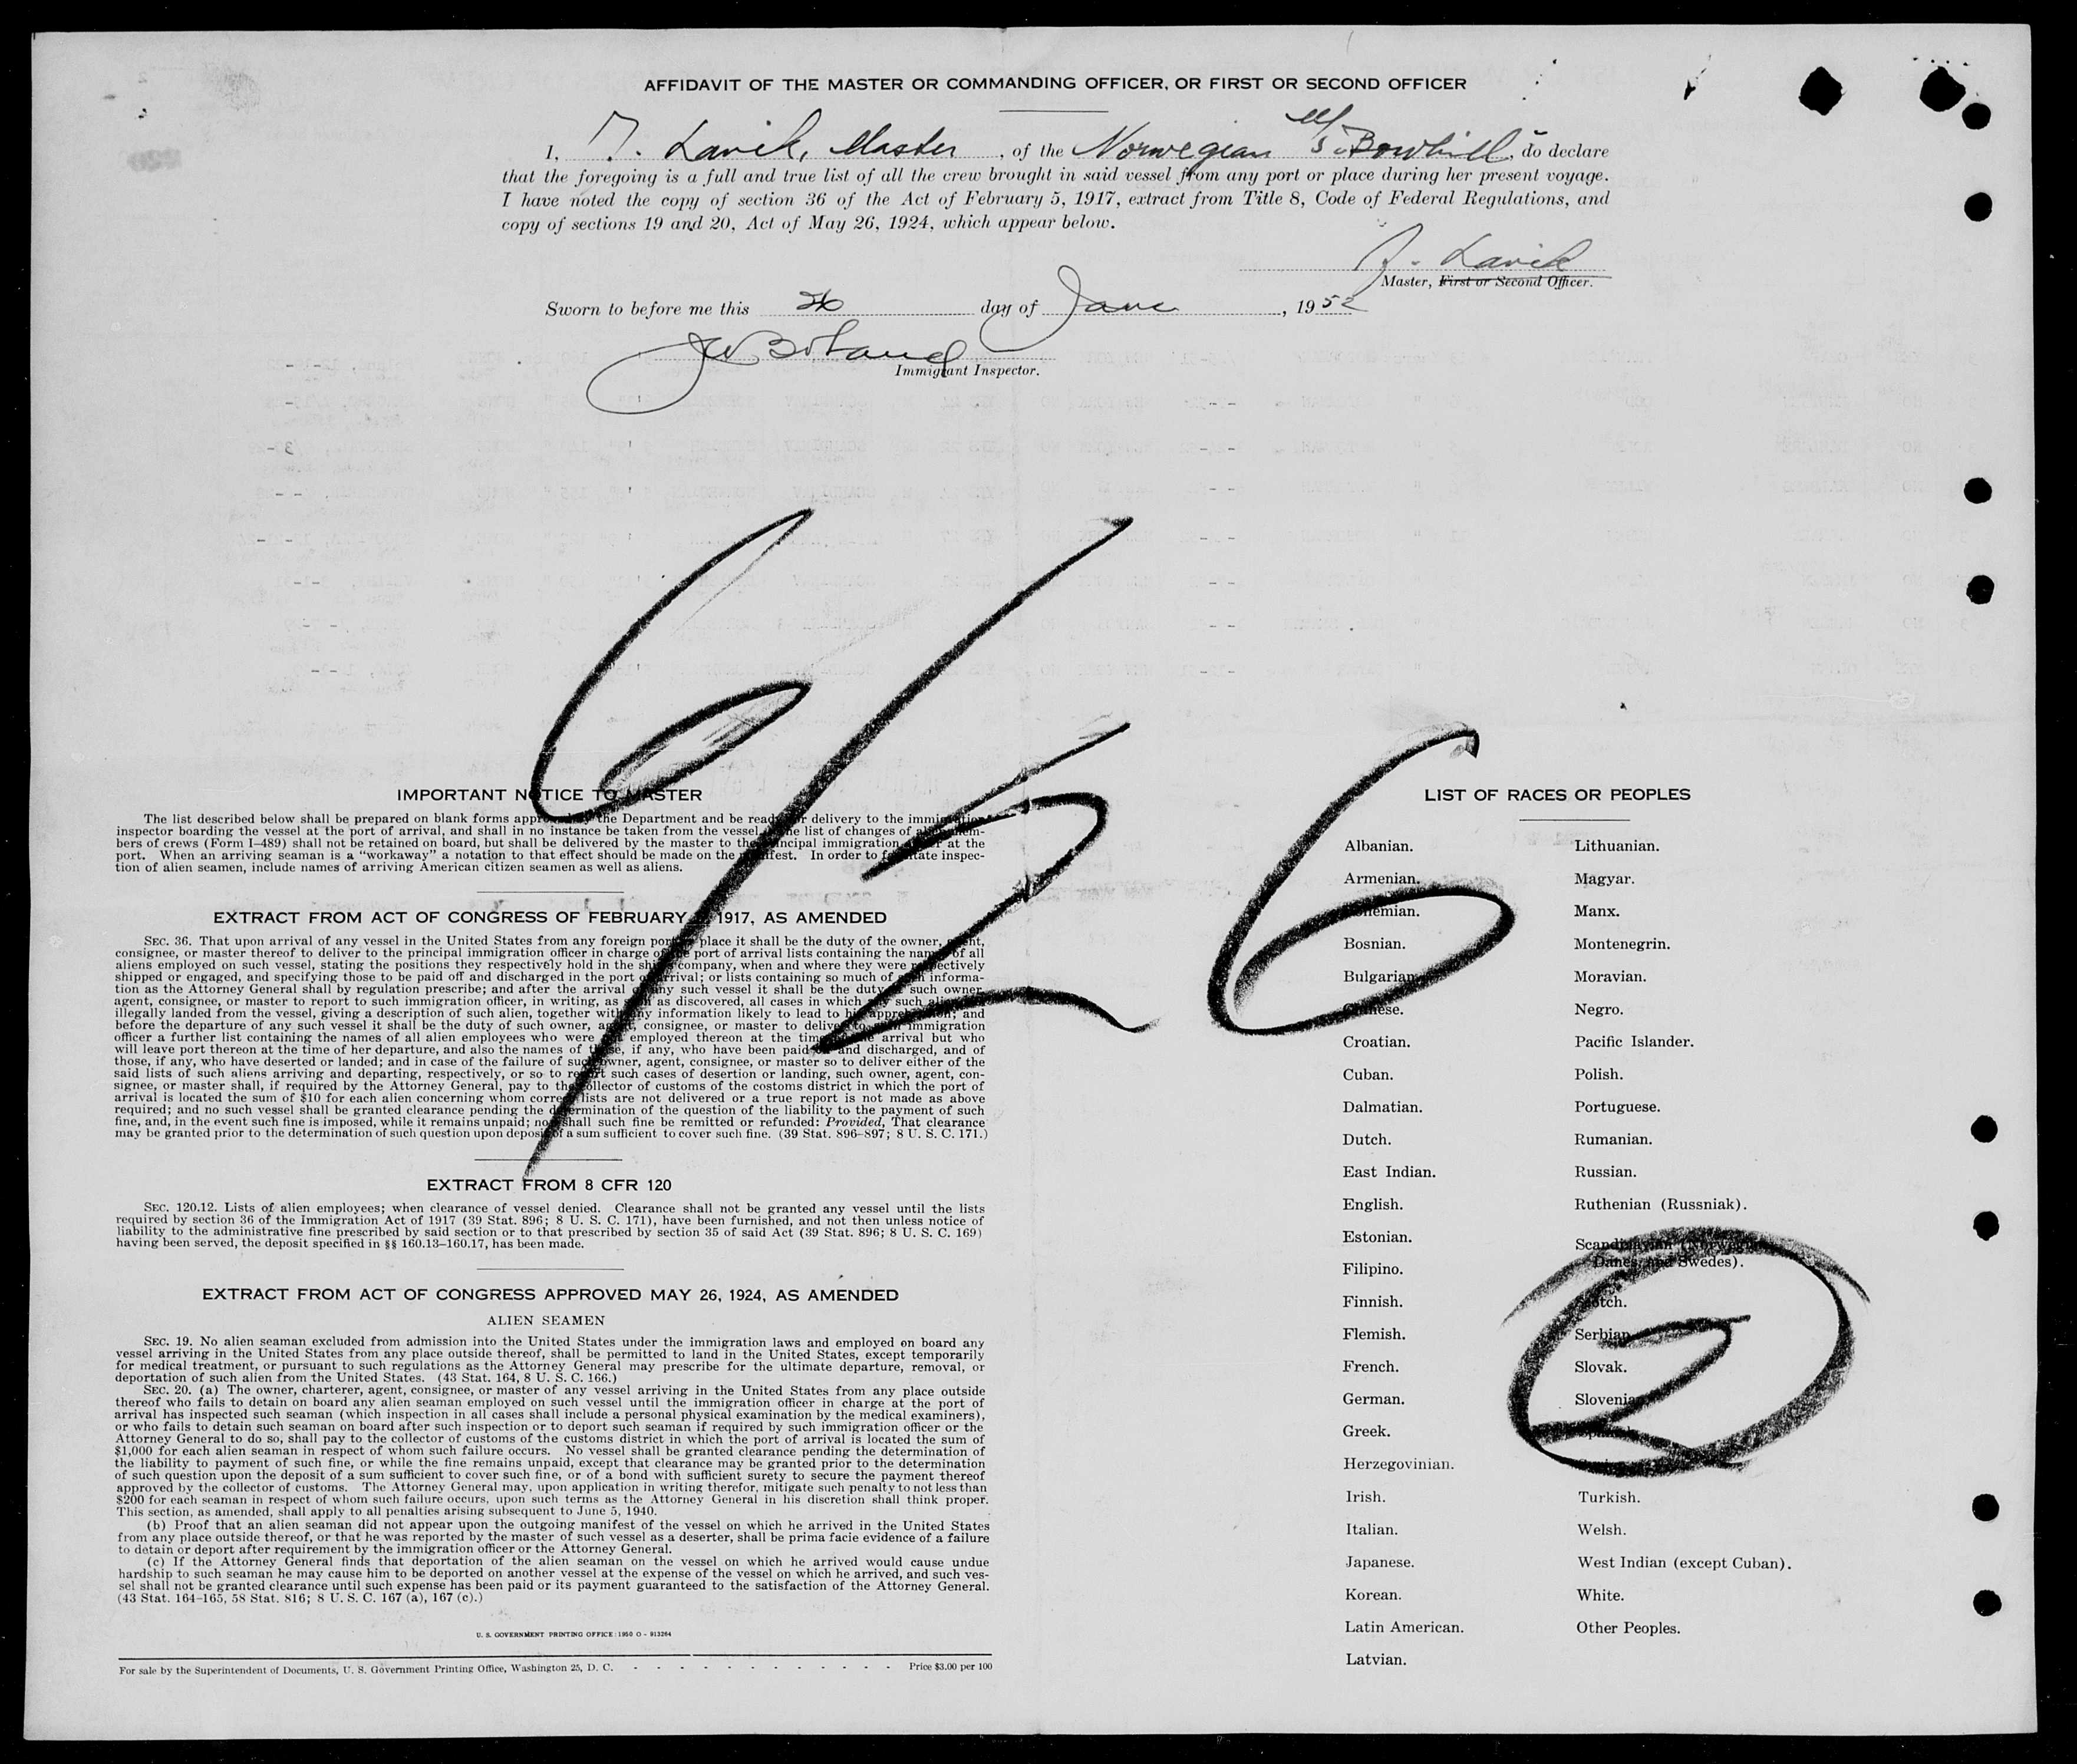 AFFIDAVIT OF THE MASTER OR COMMANDING OFFICER, OR FIRST OR SECOND OFFICER
I, Lavik, Master, of the Norwegian M/S. Bowhill, do declare
that the foregoing is a full and true list of all the crew brought in said vessel from any port or place during her present voyage.
I have noted the copy of section 36 of the Act of February 5, 1917, extract from Title 8, Code of Federal Regulations, and
copy of sections 19 and 20, Act of May 26, 1924, which appear below.
Lavik
Master, First or Second Officer.
Sworn to before me this 26 day of June, 1952
Immigrant Inspector.
6/26
IMPORTANT NOTICE TO MASTER
The list described below shall be prepared on blank forms approved by the Department and be ready for delivery to the immigration
inspector boarding the vessel at the port of arrival, and shall in no instance be taken from the vessel. The list of changes of alien mem-
bers of crews (Form I-489) shall not be retained on board, but shall be delivered by the master to the principal immigration officer at the
port. When an arriving seaman is a "workaway" a notation to that effect should be made on the manifest. In order to facilitate inspec-
tion of alien seamen, include names of arriving American citizen seamen as well as aliens.
EXTRACT FROM ACT OF CONGRESS OF FEBRUARY 5, 1917, AS AMENDED
SEC. 36. That upon arrival of any vessel in the United States from any foreign port or place it shall be the duty of the owner, agent,
consignee, or master thereof to deliver to the principal immigration officer in charge of the port of arrival lists containing the names of all
aliens employed on such vessel, stating the positions they respectively hold in the ship's company, when and where they were respectively
shipped or engaged, and specifying those to be paid off and discharged in the port of arrival; or lists containing so much of such informa-
tion as the Attorney General shall by regulation prescribe; and after the arrival of any such vessel it shall be the duty of such owner,
agent, consignee, or master to report to such immigration officer, in writing, as soon as discovered, all cases in which any such alien has
illegally landed from the vessel, giving a description of such alien, together with any information likely to lead to his apprehension; and
before the departure of any such vessel it shall be the duty of such owner, agent, consignee, or master to deliver to such immigration
officer a further list containing the names of all alien employees who were not employed thereon at the time of the arrival but who
will leave port thereon at the time of her departure, and also the names of those, if any, who have been paid off and discharged, and of
those, if any, who have deserted or landed; and in case of the failure of such owner, agent, consignee, or master so to deliver either of the
said lists of such aliens arriving and departing, respectively, or so to report such cases of desertion or landing, such owner, agent, con-
signee, or master shall, if required by the Attorney General, pay to the collector of customs of the costoms district in which the port of
arrival is located the sum of $10 for each alien concerning whom correct lists are not delivered or a true report is not made as above
required; and no such vessel shall be granted clearance pending the determination of the question of the liability to the payment of such
fine, and, in the event such fine is imposed, while it remains unpaid; nor shall such fine be remitted or refunded: Provided, That clearance
may be granted prior to the determination of such question upon deposit of a sum sufficient to cover such fine. (39 Stat. 896-897; 8 U. S. C. 171.)
EXTRACT FROM 8 CFR 120
SEC. 120.12. Lists of alien employees; when clearance of vessel denied. Clearance shall not be granted any vessel until the lists
required by section 36 of the Immigration Act of 1917 (39 Stat. 896; 8 U. S. C. 171), have been furnished, and not then unless notice of
liability to the administrative fine prescribed by said section or to that prescribed by section 35 of said Act (39 Stat. 896; 8 U. S. C. 169)
having been served, the deposit specified in §§ 160.13-160.17, has been made.
EXTRACT FROM ACT OF CONGRESS APPROVED MAY 26, 1924, AS AMENDED
ALIEN SEAMEN
SEC. 19. No alien seaman excluded from admission into the United States under the immigration laws and employed on board any
vessel arriving in the United States from any place outside thereof, shall be permitted to land in the United States, except temporarily
for medical treatment, or pursuant to such regulations as the Attorney General may prescribe for the ultimate departure, removal, or
deportation of such alien from the United States. (43 Stat. 164, 8 U. S. C. 166.)
SEC. 20. (a) The owner, charterer, agent, consignee, or master of any vessel arriving in the United States from any place outside
thereof who fails to detain on board any alien seaman employed on such vessel until the immigration officer in charge at the port of
arrival has inspected such seaman (which inspection in all cases shall include a personal physical examination by the medical examiners),
or who fails to detain such seaman on board after such inspection or to deport such seaman if required by such immigration officer or the
Attorney General to do so, shall pay to the collector of customs of the customs district in which the port of arrival is located the sum of
$1,000 for each alien seaman in respect of whom such failure occurs. No vessel shall be granted clearance pending the determination of
the liability to payment of such fine, or while the fine remains unpaid, except that clearance may be granted prior to the determination
of such question upon the deposit of a sum sufficient to cover such fine, or of a bond with sufficient surety to secure the payment thereof
approved by the collector of customs. The Attorney General may, upon application in writing therefor, mitigate such penalty to not less than
$200 for each seaman in respect of whom such failure occurs, upon such terms as the Attorney General in his discretion shall think proper.
This section, as amended, shall apply to all penalties arising subsequent to June 5, 1940.
(b) Proof that an alien seaman did not appear upon the outgoing manifest of the vessel on which he arrived in the United States
from any place outside thereof, or that he was reported by the master of such vessel as a deserter, shall be prima facie evidence of a failure
to detain or deport after requirement by the immigration officer or the Attorney General.
(c) If the Attorney General finds that deportation of the alien seaman on the vessel on which he arrived would cause undue
hardship to such seaman he may cause him to be deported on another vessel at the expense of the vessel on which he arrived, and such ves-
sel shall not be granted clearance until such expense has been paid or its payment guaranteed to the satisfaction of the Attorney General.
(43 Stat. 164-165, 58 Stat. 816; 8 U. S. C. 167 (a), 167 (c).)
U. S. GOVERNMENT PRINTING OFFICE : 1950 O - 913264
For sale by the Superintendent of Documents, U. S. Government Printing Office, Washington 25, D. C. - - - - - - - - - - - - Price $3.00 per 100
LIST OF RACES OR PEOPLES
Albanian.
Armenian.
Bohemian.
Bosnian.
Bulgarian.
Chinese.
Croatian.
Cuban.
Dalmatian.
Dutch.
East Indian.
English.
Estonian.
Filipino.
Finnish.
Flemish.
French.
German.
Greek.
Herzegovinian.
Irish.
Italian.
Japanese.
Korean.
Latin American.
Latvian.
Lithuanian.
Magyar.
Manx.
Montenegrin.
Moravian.
Negro.
Pacific Islander.
Polish.
Portuguese.
Rumanian.
Russian.
Ruthenian (Russniak).
Scandinavian (Norwegians,
Danes, and Swedes).
Scotch.
Serbian.
Slovak.
Slovenian.
Spanish.
Turkish.
Welsh.
West Indian (except Cuban).
White.
Other Peoples.
2